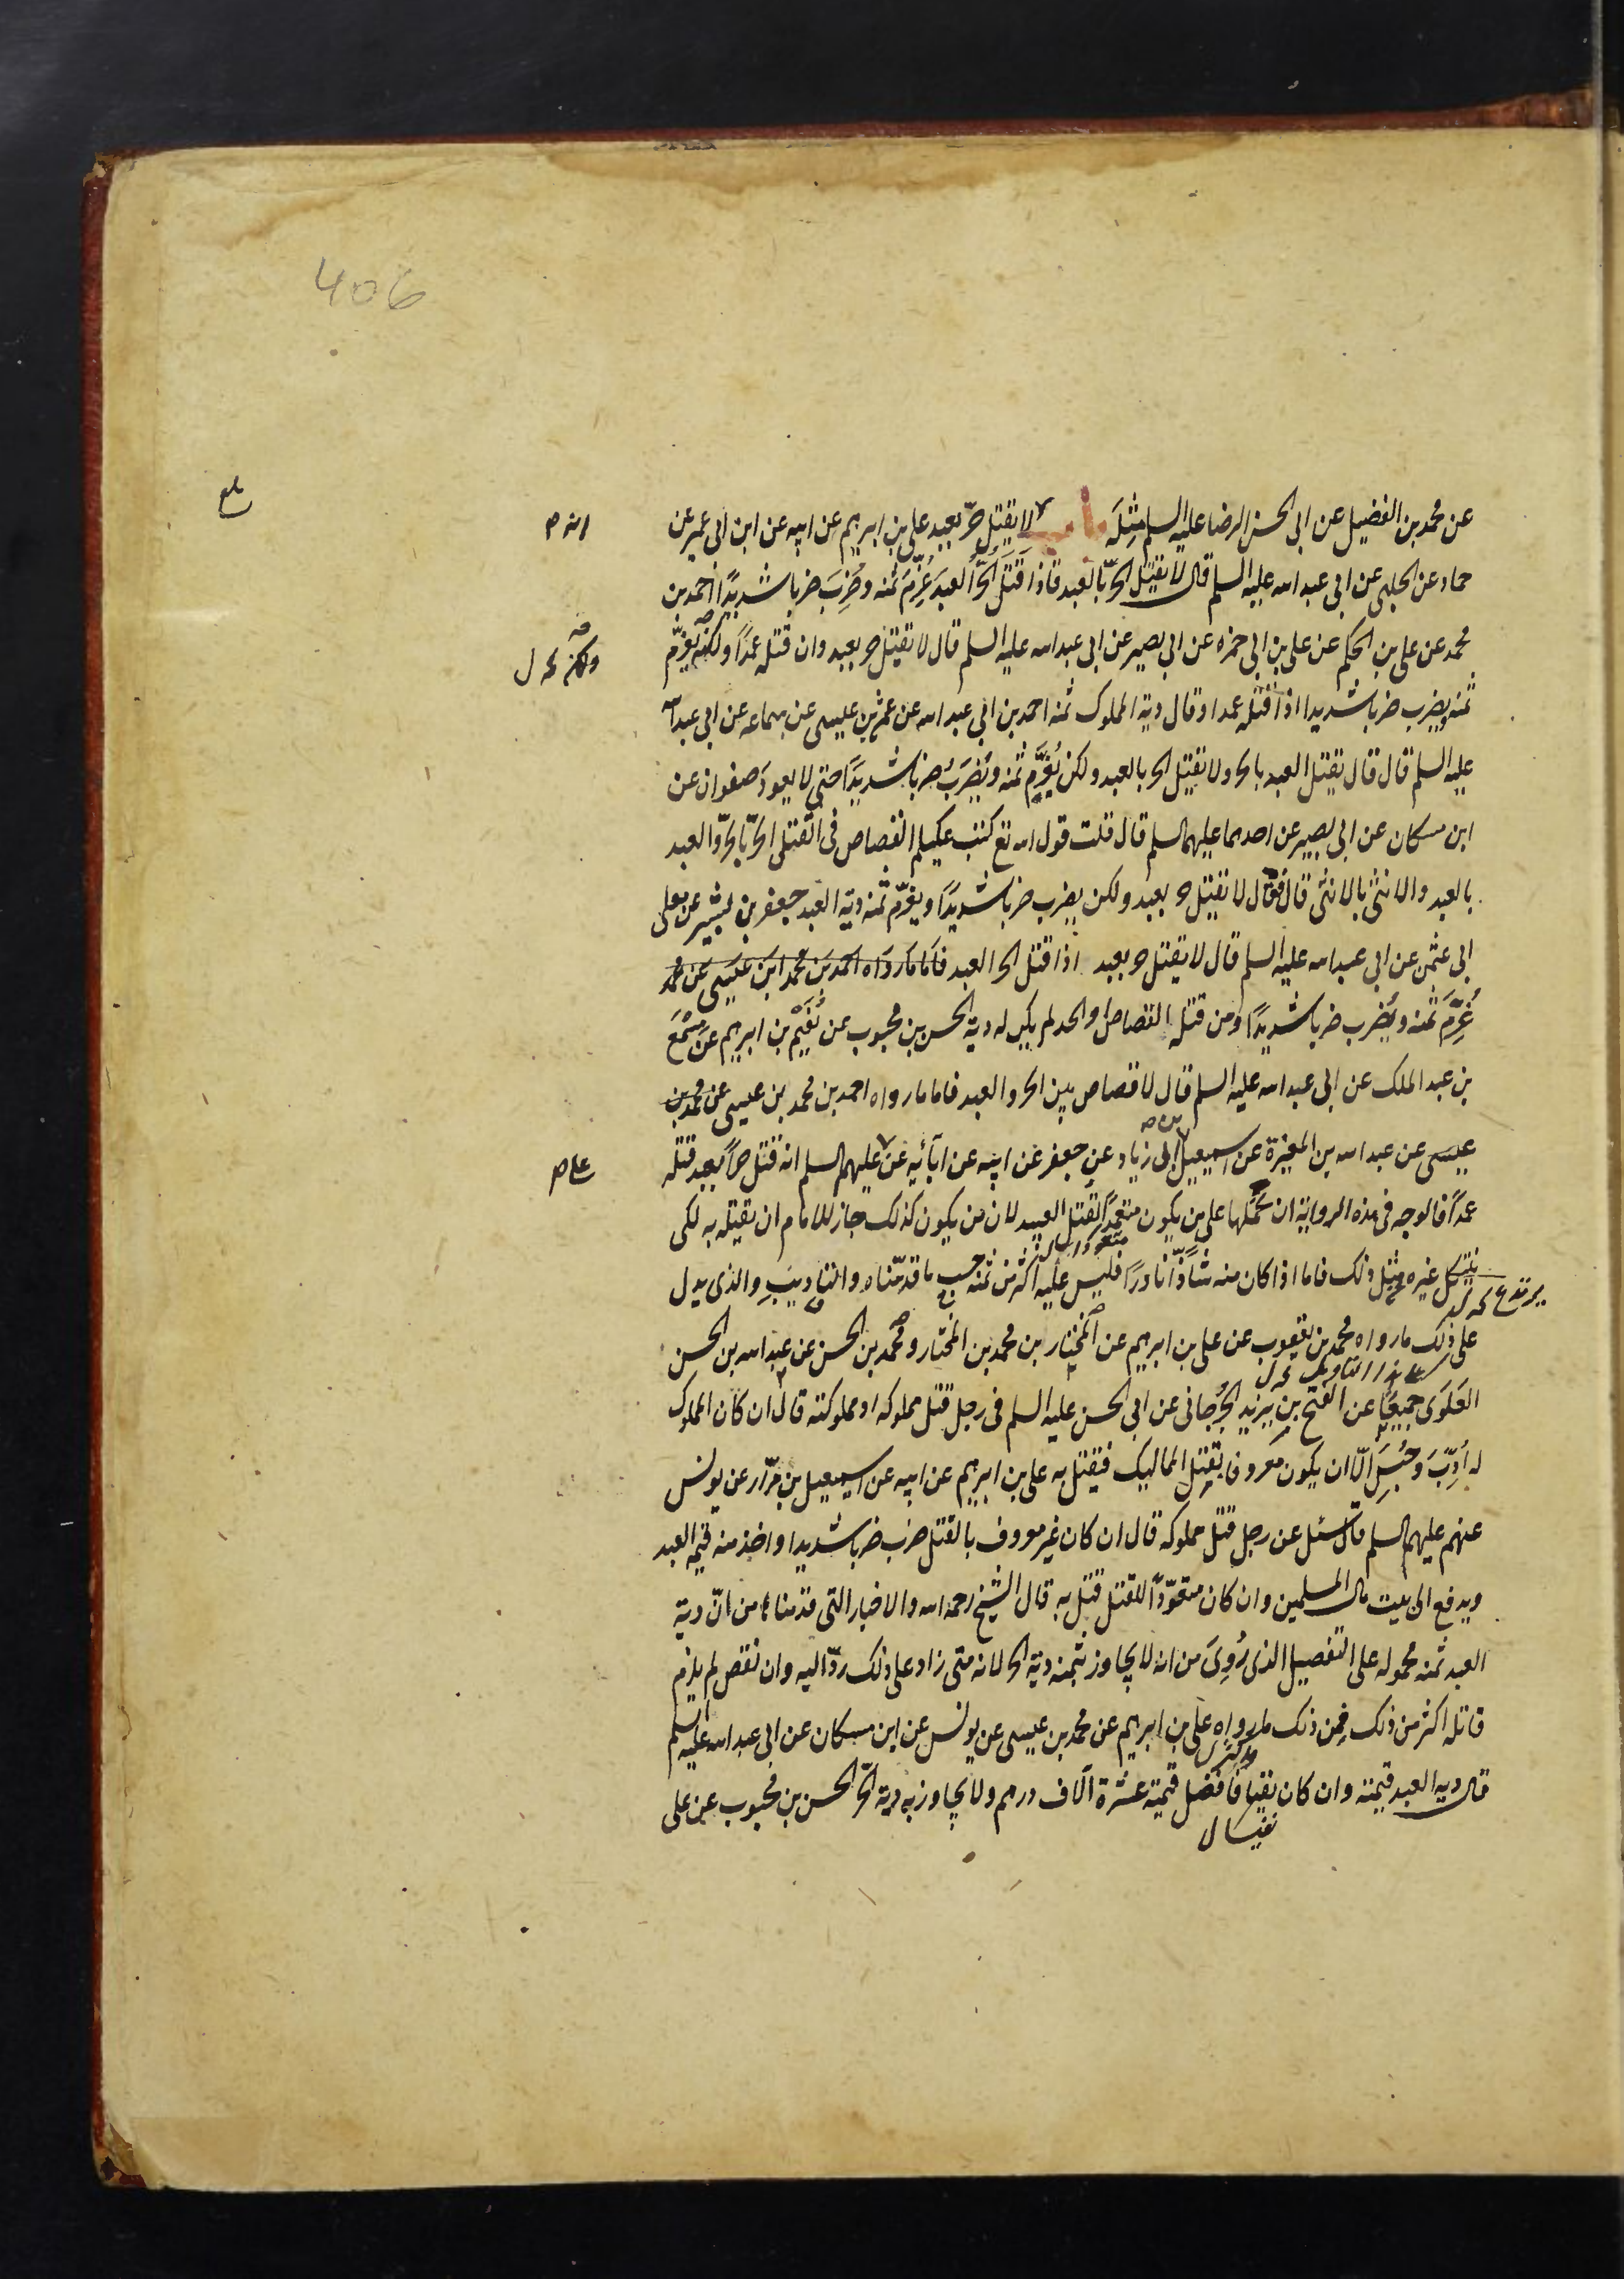 406
بلغ
عن محمد بن الفضيل عن ابى الحسن الرضا عليه السلم مِثلَه باب انه لا يقتل حرّ بعبد على بن ابرهيم عن ابيه عن ابن ابى عمير عن
حماد عن الحلبى عن ابى عبد اسه عليه السلم قال لا يقتل الحرّ بالعبد فاذا قَتَلَ الحُرُّ العبدَ غُرِّمَ ثمنه وضُرِبَ ضربا شديدًا احمد بن
محمد عن على بن الحكم عن على بن ابى حمزه عن ابى بصير عن ابى عبد اسه عليه السلم قال لا يقتل حر بعبد وان قتله عمدًا ولكنّه يغرّم
ولكن ل
ثمنه ويضرب ضربا شديدا اذا قتله عمدا وقال دية المملوك ثمنه احمد بن ابى عبد اسه عن عثمن بن عليسى عن سماعه عن ابى عبد اسه
عليه السلم قال قال يقتل العبد بالحر ولا يقتل الحر بالعبد ولكن يُغَرَّم ثمنه ويُضرَبُ ضربا شديدًا حتى لا يعودَ صفوان عن
ابن مسكان عن ابى بصير عن احدهما عليهما السلم قال قلت قول اسه تع كتب عليكم القصاص فى القتلى الحرّ بالحرّ والعبد
بالعبد والانثى بالانثى قال فقال لا يقتل حر بعبد ولكن يضرب ضربا شديدًا ويغرّم ثمنه دية العبد جعفر بن بشير عن معلى
ابى عثمن عن ابى عبد اسه عليه السلم قال لا يقتل حر بعبد اذا قتل الحر العبد فاما ما رواه احمد بن محمد ابن عيسى عن محمد
غُرِّمَ ثمنه ويُضرب ضربا شديدًا ومن قتله القصاص او الحد لم يكن له دية الحسن بن محبوب عن نُعَيْم بن ابرهيم عن مِسْمَع
بن عبد الملك عن ابى عبد اسه عليه السلم قال لا قصاص بين الحر والعبد فاما ما رواه احمد بن محمد بن عيسى عن محمد بن
عيسى عن عبد اسه بن المغيرة عن اسمعيل ابى زياد عن جعفر عن ابيه عن آبائه عن عليهم السلم انه قتل حرًّا بعبد قتله
على
عمدًا فالوجه فى هذه الرواية ان نحملها على من يكون متعمدًا لقتل العبيد لان من يكون كذلك جاز للامام ان يقتله به لكى
ينكل غيره مثل ذلك فاما اذا كان منه شاذًّا نادرًا فليس عليه اكثر من ثمنه حسب ما قدمناه والتاديب والذى يدل
يرتدع
على ذلك ما رواه محمد بن يعقوب عن على بن ابرهيم عن المختار بن محمد بن المختار ومحمد بن الحسن عن عبد اسه بن الحسن
العَلَوى جميعًا عن الفتح بن يزيد الجُرجانى عن ابى الحسن عليه السلم فى رجل قتل مملوكه او مملوكته قال ان كان المملوك
له أُدِّبَ وحُبِسَ الّا ان يكون معروفا بقتل المماليك فيقتل به على بن ابرهيم عن ابيه عن اسمعيل بن مرّار عن يونس
عنهم عليهم السلم قال سئل عن رجل قتل مملوكه قال ان كان غير معروف بالقتل ضرب ضربا شديدا واخذ منه قيمة العبد
ويدفع الى بيت مال المسلمين وان كان متعوّدًا للقتل قتل به قال الشيخ رحمه اسه والاخبار التى قدمناها من انّ دية
العبد ثمنه محموله على التفصيل الذى رُوِىَ من انه لا يجاوز بثمنه دية الحر لانه متى زاد على ذلك ردّ اليه وان نقص لم يلزم
قاتله اكثر من ذلك فمن ذلك ما رواه على بن ابرهيم عن محمد بن عيسى عن يونس عن ابن مسكان عن ابى عبد اسه عليه السلم
قال دية العبد قيمته وان كان نفيسا فافضل قيمته عشرة آلاف درهم ولا يجاوز به دية الحرّ الحسن بن محبوب عن على
نفيسا ل